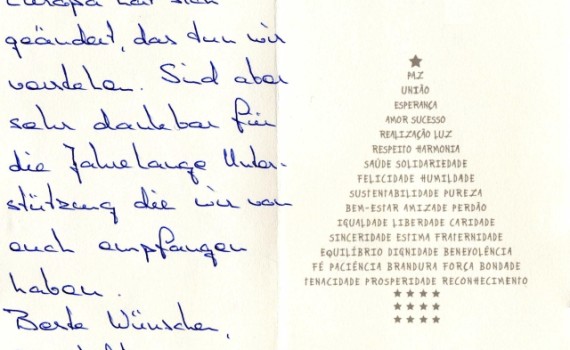 Europa hat sich
geändert, das tun wir
verstehen. Sind aber
sehr dankbar für
die Jahrelange Unter-
stützung die wir von
euch empfangen
haben.
Beste Wünschen,
PAZ
UNIÃO
ESPERANÇA
AMOR SUCESSO
REALIZAÇÃO LUZ
RESPEITO HARMONIA
SAÚDE SOLIDARIEDADE
FELICIDADE HUMILDADE
SUSTENTABILIDADE PUREZA
BEM-ESTAR AMIZADE PERDÃO
IGUALDADE LIBERDADE CARIDADE
SINCERIDADE ESTIMA FRATERNIDADE
EQUILÍBRIO DIGNIDADE BENEVOLÊNCIA
FÉ PACIÊNCIA BRANDURA FORÇA BONDADE
TENACIDADE PROSPERIDADE RECONHECIMENTO